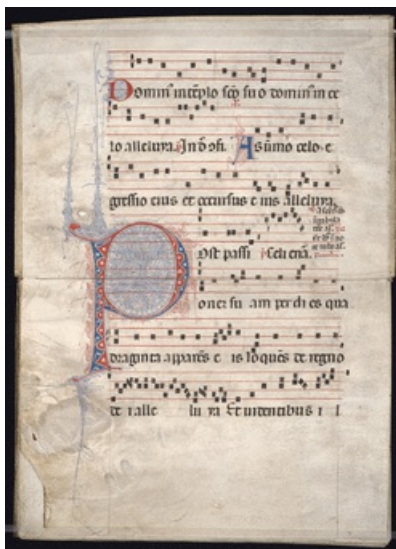 Dominꝰ in tēplo scō su o dominꝰ in ce
lo alleluya. A sūmo celo e
gressio eius et occursus e ius alleluya.
Post passi
onē su am per di es qua
draginta apparēs e is loquēs de regno
de i alle lu ya Et uidentibus i l